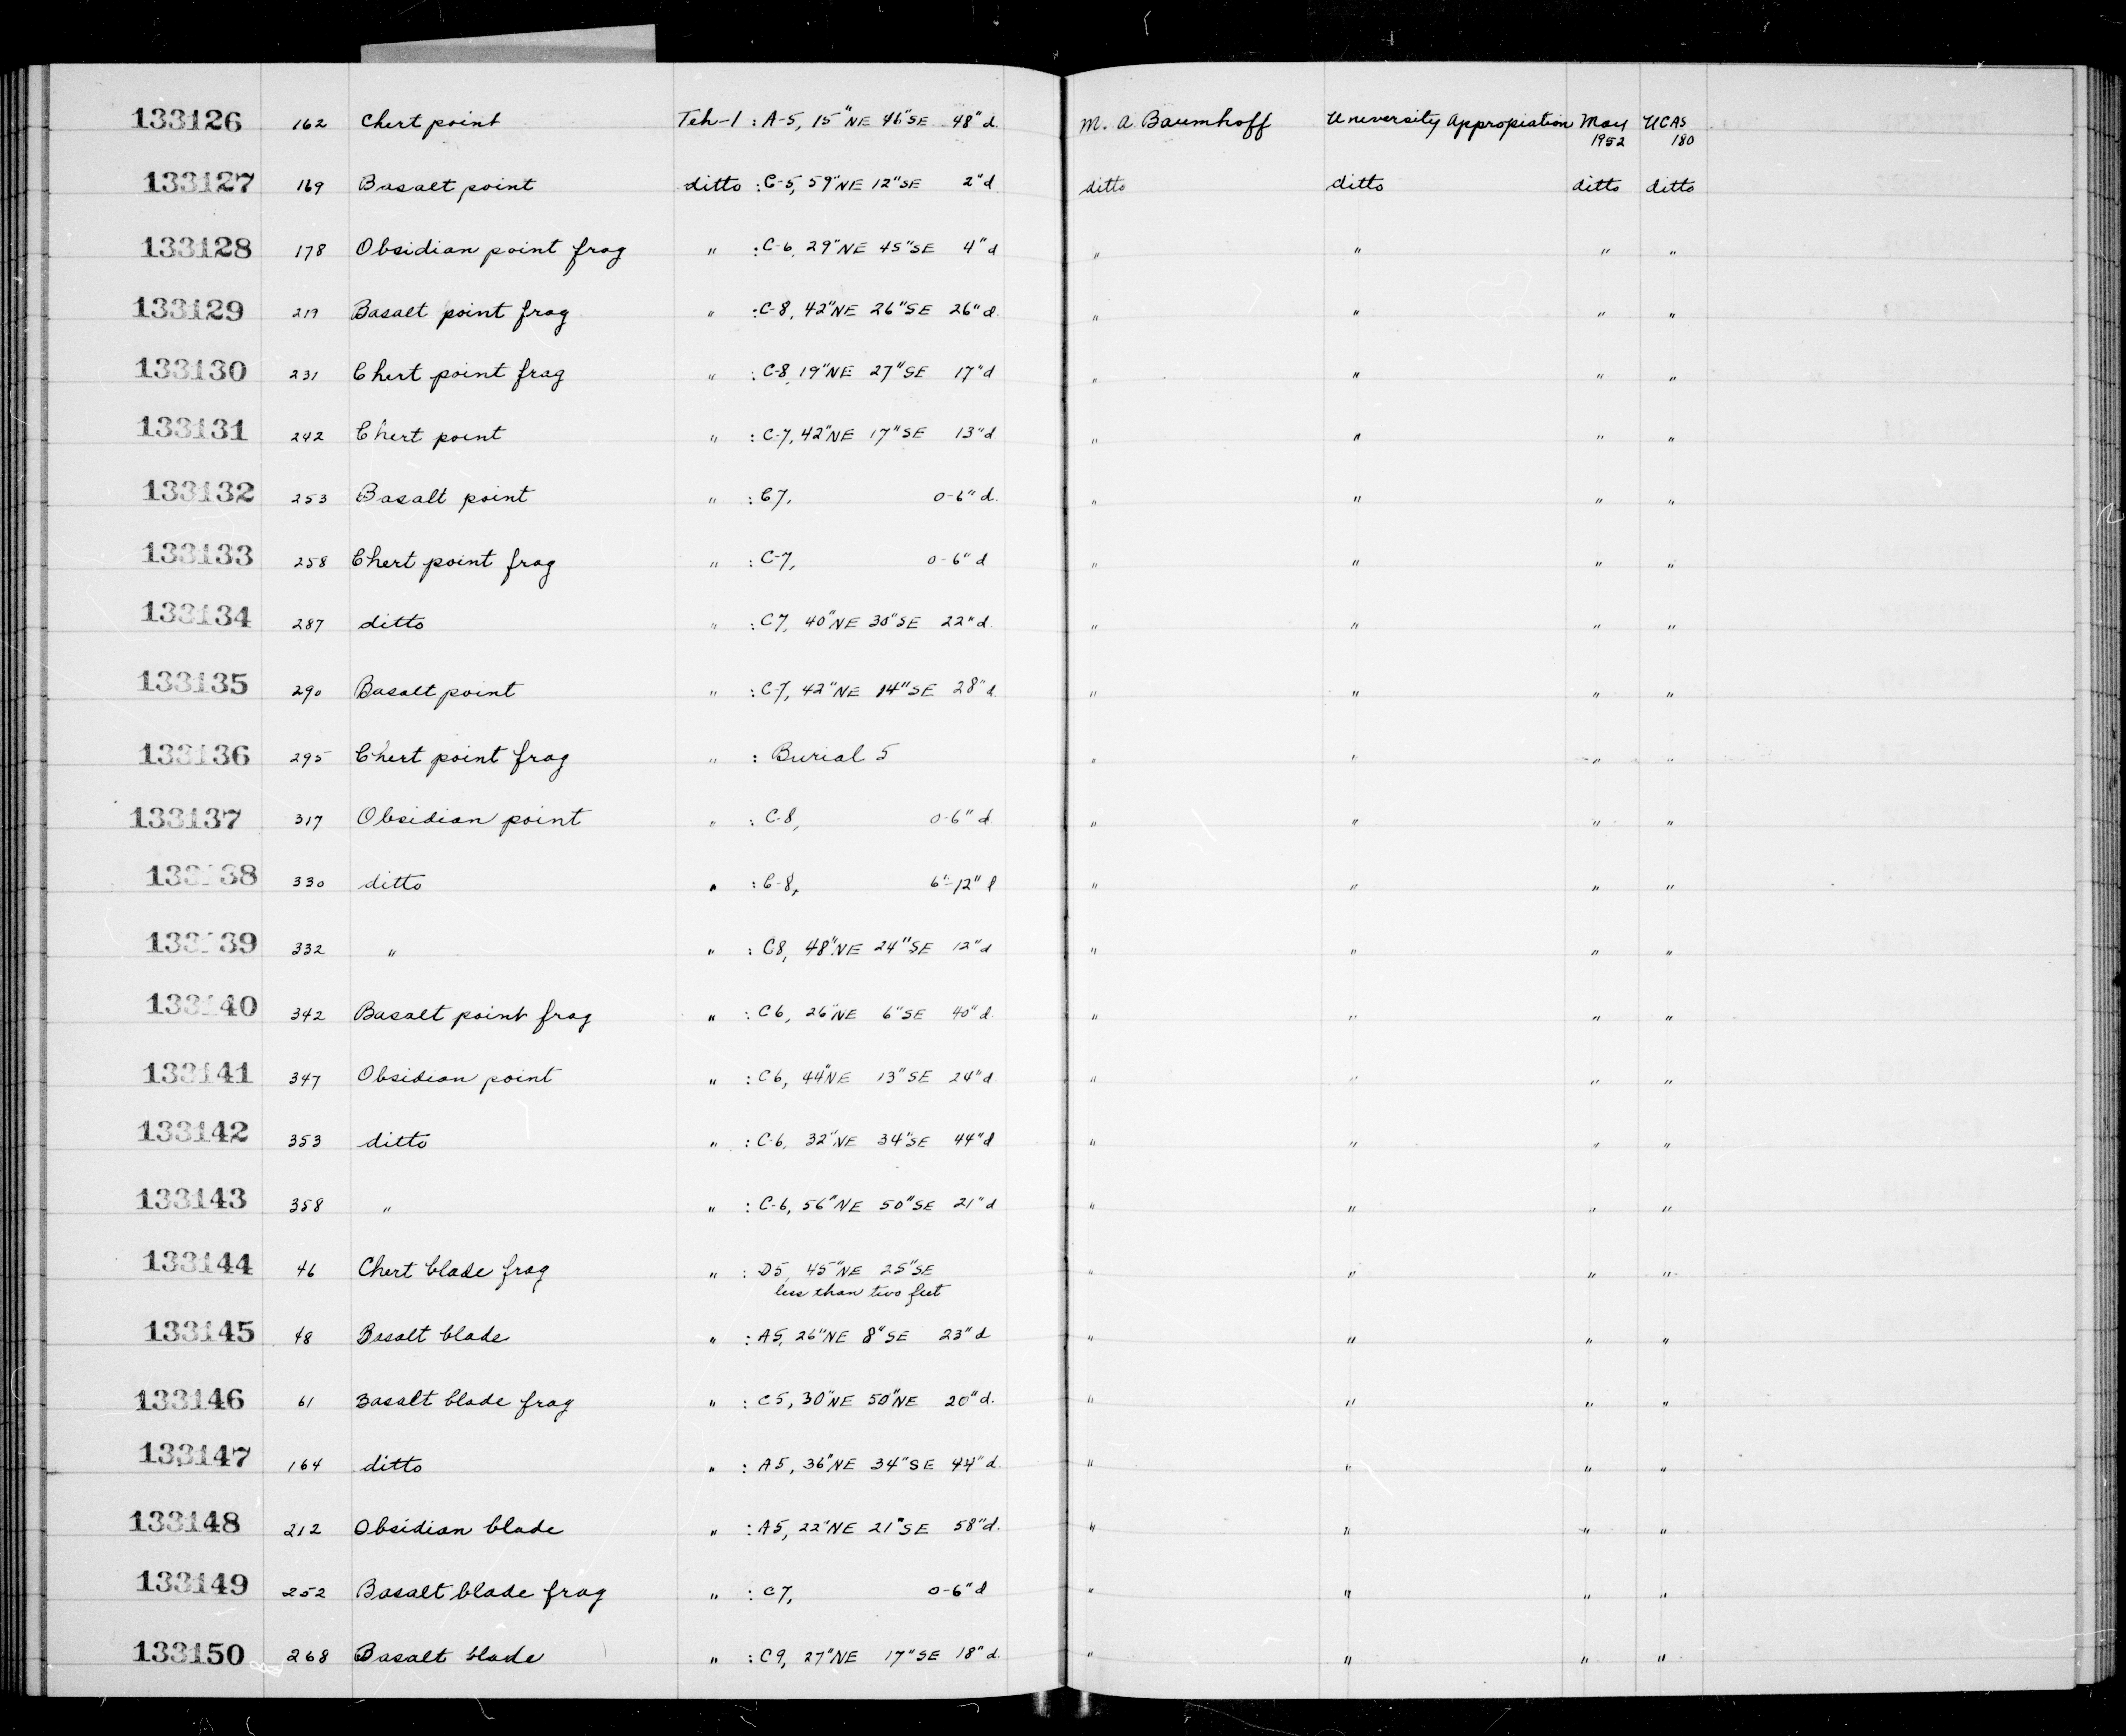 133126 162 Chert point Teh-1 : A-5, 15"NE 46"SE 48"d. M. A. Baumhoff University Appropiation May 1952 UCAS 180
133127 169 Basalt point ditto : C-5, 59"NE 12"SE 2"d ditto ditto ditto ditto
133128 178 Obsidian point frag " : C-6, 29"NE 45"SE 4"d " " " "
133129 219 Basalt point frag " : C-8, 42"NE 26"SE 26"d " " " "
133130 231 Chert point frag " : C-8, 19"NE 27"SE 17"d " " " "
133131 242 Chert point " : C-7, 42"NE 17"SE 13"d " " " "
133132 253 Basalt point " : C7, 0-6"d. " " " "
133133 258 Chert point frag " : C-7, 0-6"d " " " "
133134 287 ditto " : C7, 40"NE 30"SE 22"d. " " " "
133135 290 Basalt point " : C-7, 42"NE 14"SE 28"d. " " " "
133136 295 Chert point frag " : Burial 5 " " " "
133137 317 Obsidian point " : C-8, 0-6"d " " " "
133138 330 ditto " : C-8, 6"-12" " " " "
133139 332 " " : C8, 48"NE 24"SE 12"d " " " "
133140 342 Basalt point frag " : C6, 26"NE 6"SE 40"d. " " " "
133141 347 Obsidian point " : C6, 44"NE 13"SE 24"d. " " " "
133142 353 ditto " : C-6, 32"NE 34"SE 44"d " " " "
133143 358 " " : C-6, 56"NE 50"SE 21"d " " " "
133144 46 Chert blade frag " : D5, 45"NE 25"SE " " " "
less than two feet
133145 48 Basalt blade " : A5, 26"NE 8"SE 23"d " " " "
133146 61 Basalt blade frag " : C5, 30"NE 50"NE 20"d. " " " "
133147 164 ditto " : A5, 36"NE 34"SE 44"d. " " " "
133148 212 Obsidian blade " : A5, 22"NE 21"SE 58"d. " " " "
133149 252 Basalt blade frag " : C7, 0-6"d " " " "
133150 268 Basalt blade " : C9, 27"NE 17"SE 18"d. " " " "